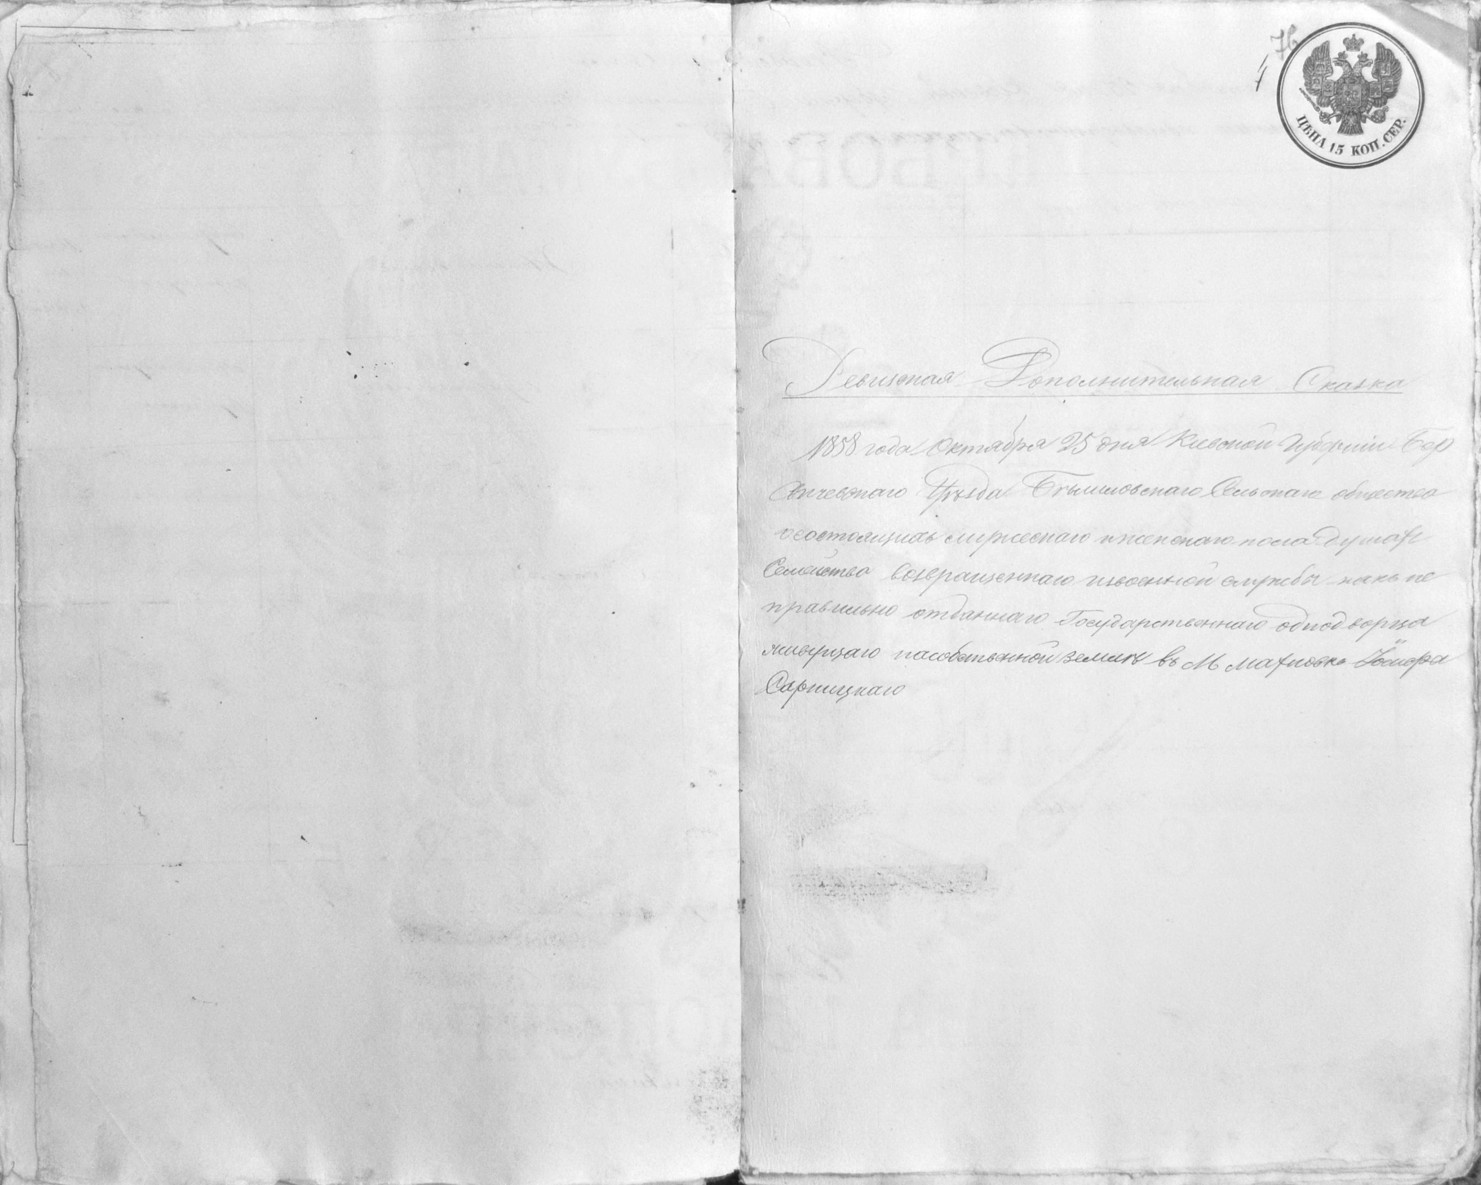 76
ЦѢНА 15 КОП. СЕР.
Ревизская Дополнительная Сказка
1858 года Октября 25 дня Киевской Губернии Бер
дичевскаго Уѣзда Сельскаго общества
о состоящихъ мужескаго и женскаго пола душахъ
Семейства возвращеннаго изъ военной службы какъ не
правильно отданнаго Государственнаго однодворца
живущаго на собственной землѣ въ М. Махновкѣ
Сарницкаго